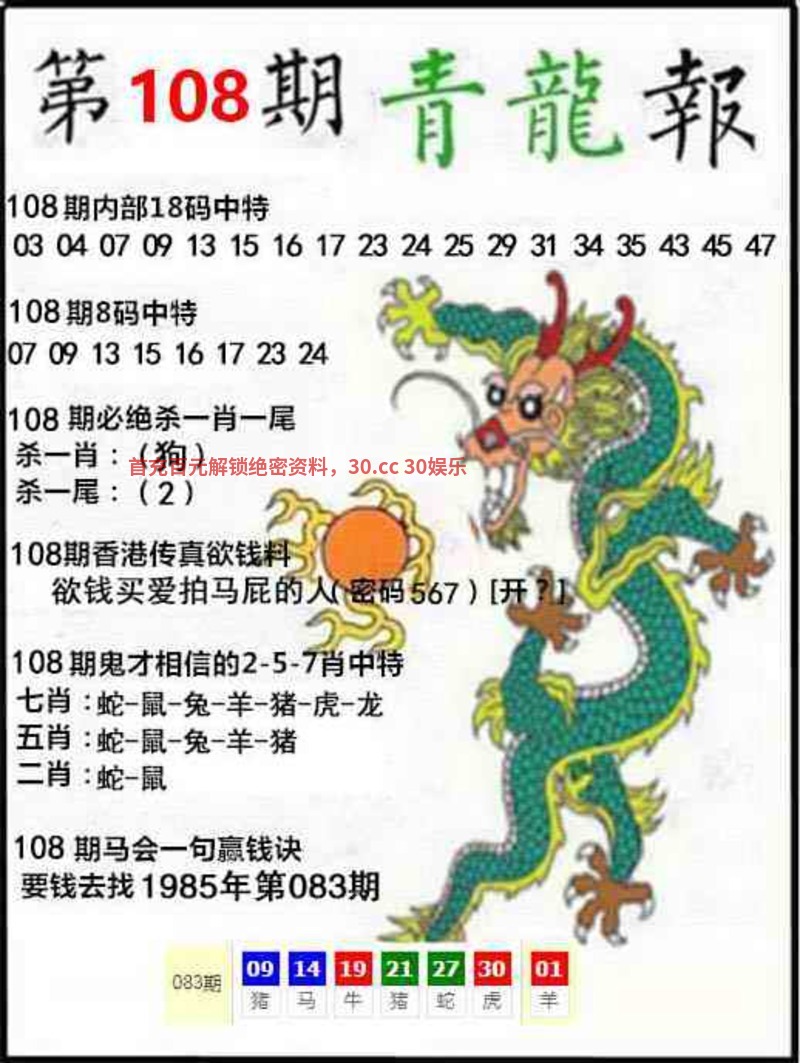 第108期青龍報
108期内部18码中特
03 04 07 09 13 15 16 17 23 24 25 29 31 34 35 43 45 47
108期8码中特
07 09 13 15 16 17 23 24
108 期必绝杀一肖一尾
杀一肖：（狗）
首充百元解锁绝密资料，30.cc 30娱乐
杀一尾：（2）
108期香港传真欲钱料
欲钱买爱拍马屁的人(密码567)[开？]
108期鬼才相信的2-5-7肖中特
七肖：蛇-鼠-兔-羊-猪-虎-龙
五肖：蛇-鼠-兔-羊-猪
二肖：蛇-鼠
108 期马会一句赢钱诀
要钱去找1985年第083期
083期 09 14 19 21 27 30 01
猪 马 牛 猪 蛇 虎 羊